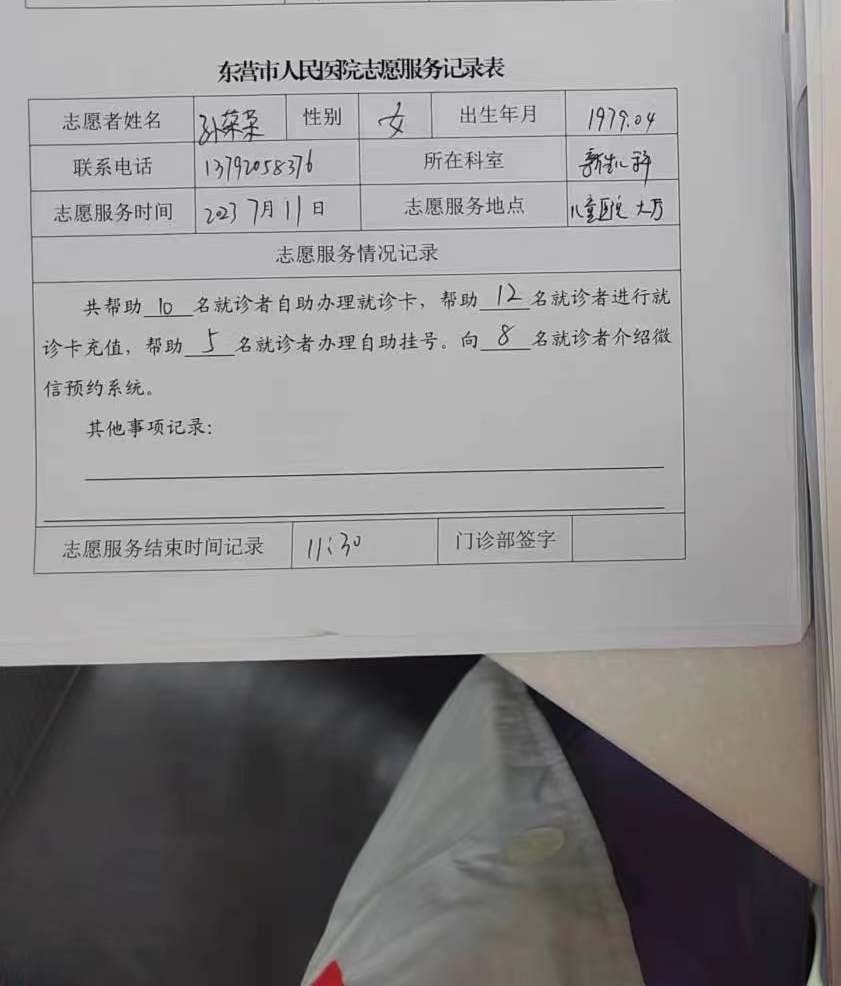 东营市人民医院志愿服务记录表
志愿者姓名 孙荣荣 性别 女 出生年月 1979.04
联系电话 13792058376 所在科室 新生儿科
志愿服务时间 2023 7月11日 志愿服务地点 儿童医院大厅
志愿服务情况记录
共帮助 10 名就诊者自助办理就诊卡，帮助 12 名就诊者进行就
诊卡充值，帮助 5 名就诊者办理自助挂号。向 8 名就诊者介绍微
信预约系统。
其他事项记录：
志愿服务结束时间记录 11:30 门诊部签字